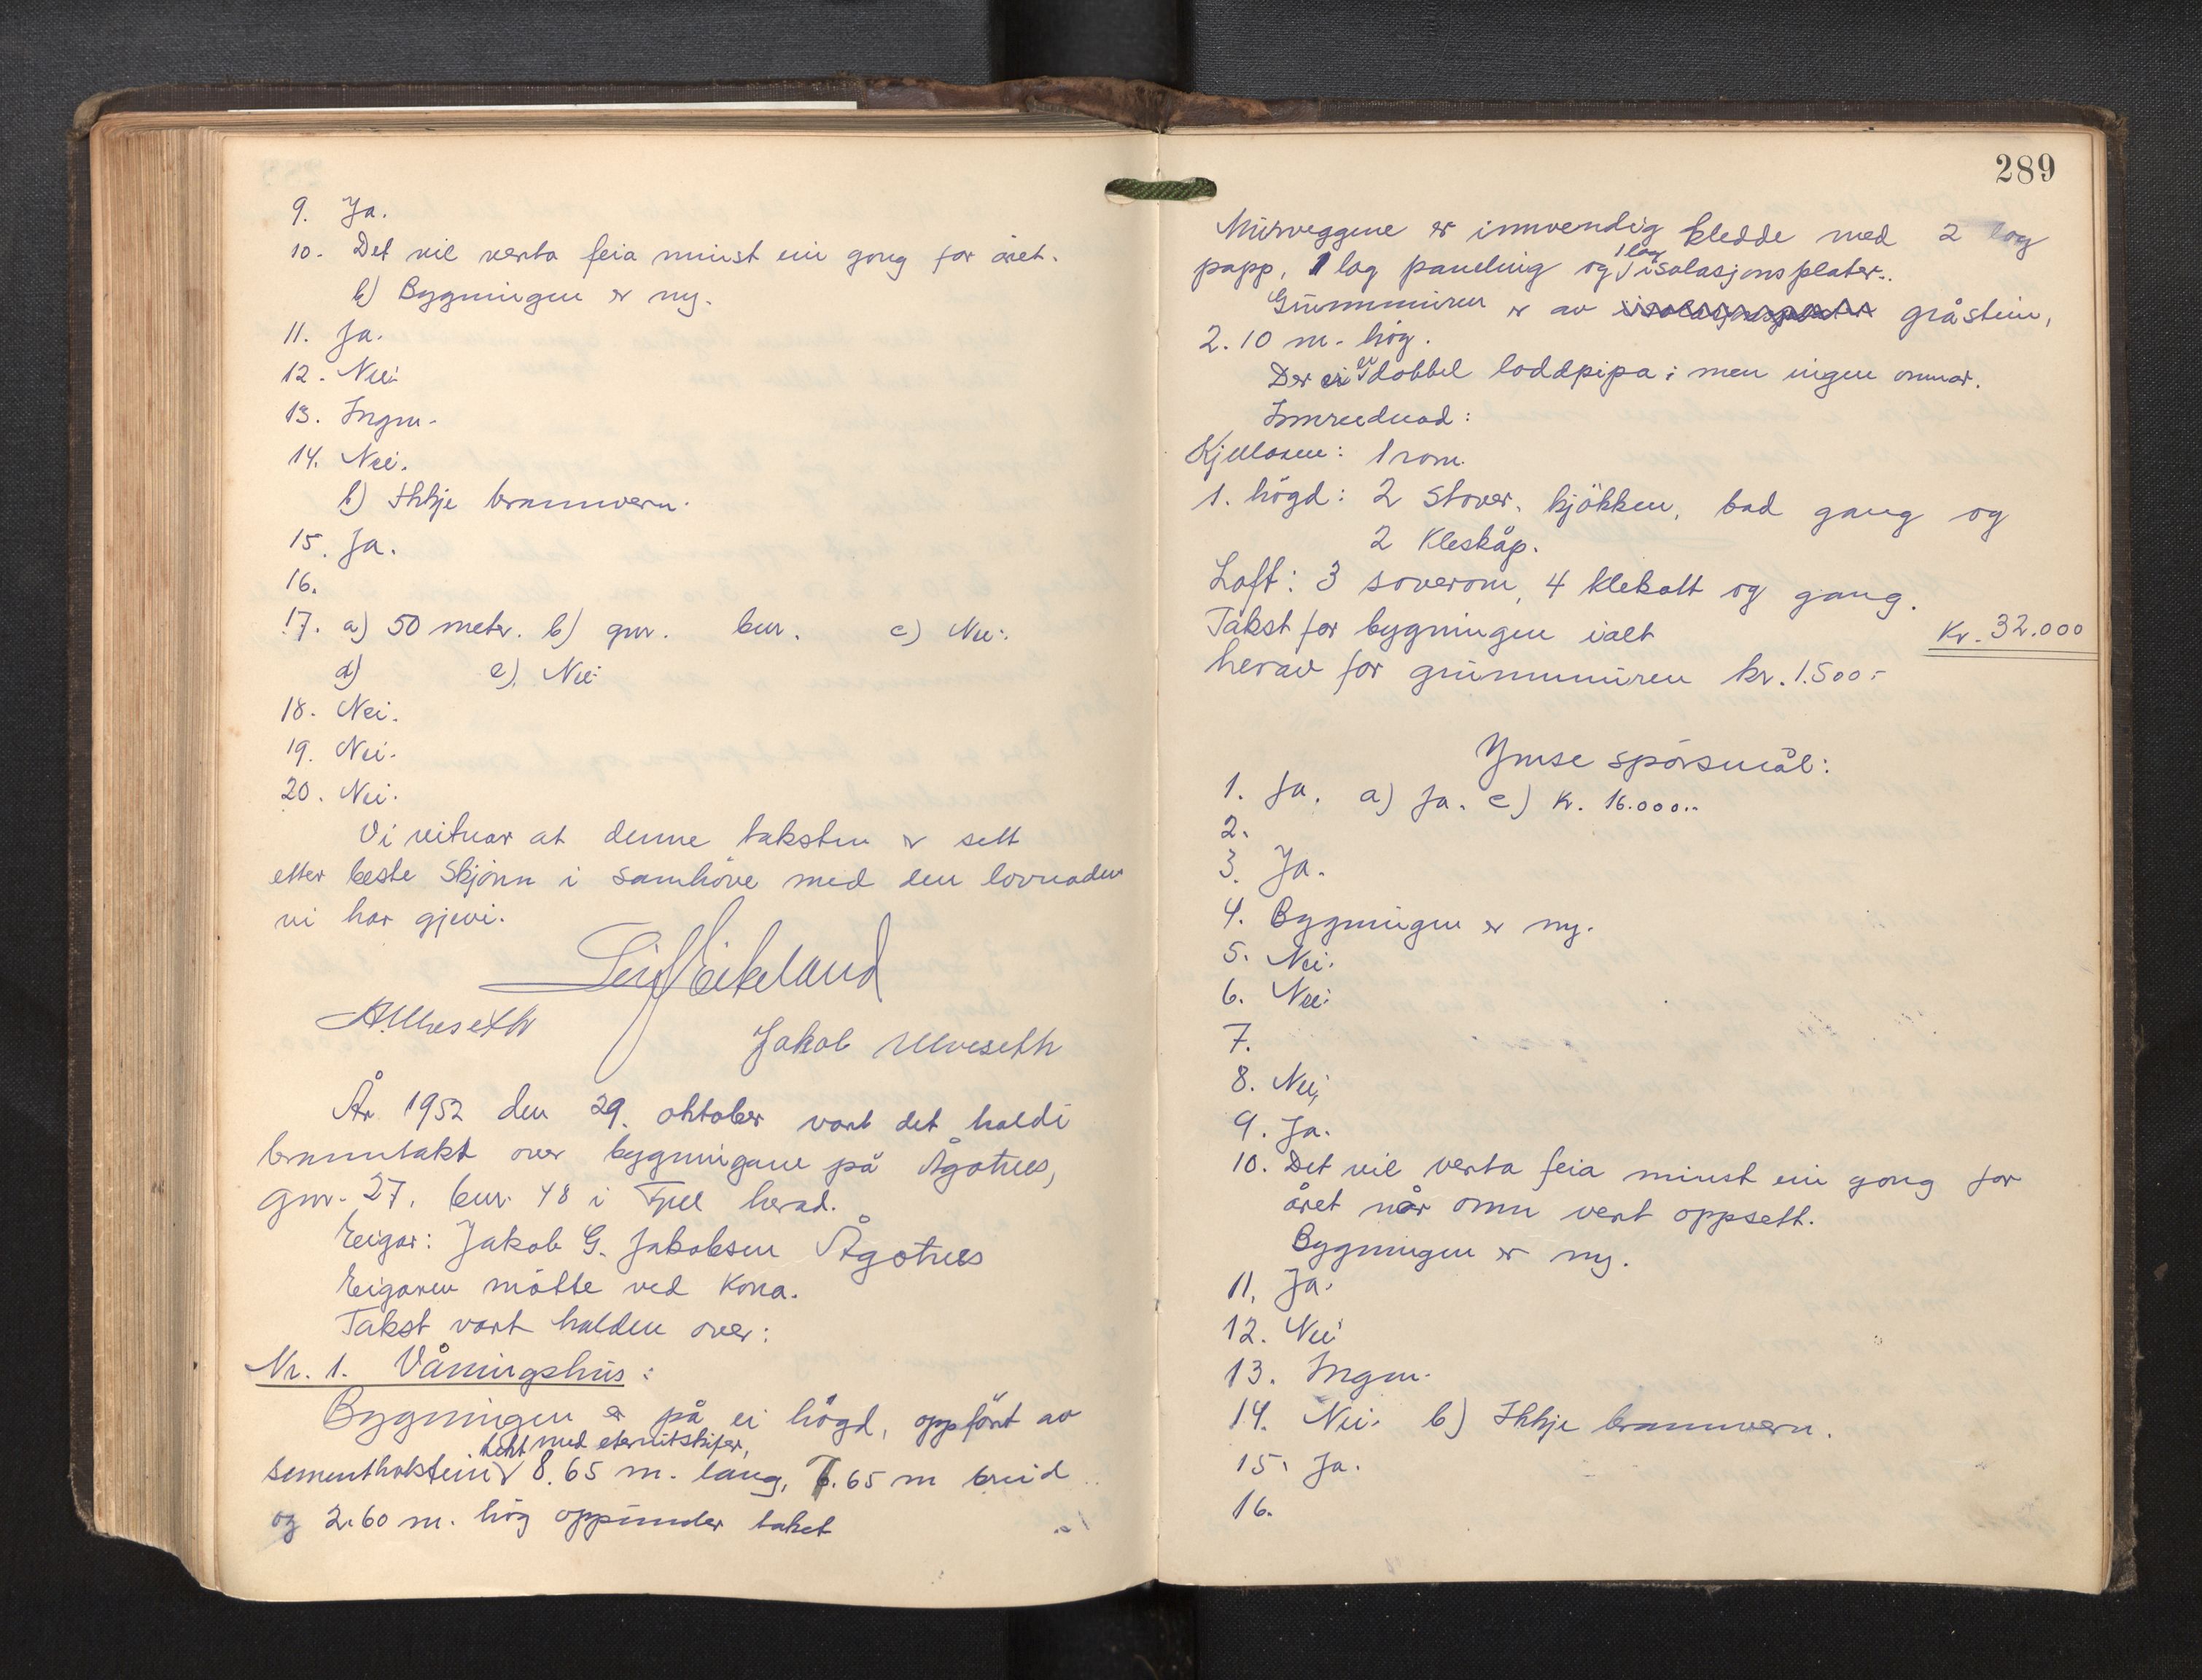 9. Ja.
10. Det vil verta feia minst ein gong for året.
b) Bygningen er ny.
11. Ja.
12. Nei
13. Ingen.
14. Nei.
b) Ikkje brannvern.
15. Ja.
16.
17. a) 50 meter. b) gnr. bnr. c) Nei.
d) e) Nei
18. Nei.
19. Nei.
20. Nei.
Vi vitnar at denne taksten er sett
etter beste skjönn i samhöve med den lovnaden
vi har gjevi.
Leif Eikeland
A. Ulveseth
Jakob Ulveseth
År 1952 den 29. oktober vart det haldi
branntakst over bygningane på Ågotnes,
gnr. 27, bnr. 48 i Fjell herad.
Eigar: Jakob G. Jakobsen Ågotnes
Eigaren mötte ved kona.
Takst vart halden over:
Nr. 1. Våningshus:
Bygningen er på ei högd, oppfört av
tekt med eternitskifer,
sementholstein 8.65 m. lang, 7.65 m breid
og 2.60 m. hög oppunder taket
289
Murveggene er innvendig kledde med 2 lag
papp, 1 lag paneling og 1 lag isolasjonsplater.
Grunnmuren er av isolasjonsplater gråstein,
2.10 m. hög.
Der er ei dobbel loddpipa; men ingen omnar.
Innreidnad:
Kjellaren: 1 rom.
1. högd: 2 stover, kjökken, bad gang og
2 kleskåp.
Loft: 3 soverom, 4 klekott og gang.
Takst for bygningen ialt Kr. 32.000
herav for grunnmuren kr. 1.500.-
Ymse spörsmål:
1. Ja. a) Ja. c) Kr. 16.000.-
2.
3. Ja.
4. Bygningen er ny.
5. Nei.
6. Nei
7.
8. Nei,
9. Ja.
10. Det vil verta feia minst ein gong for
året når omn vert oppsett.
Bygningen er ny.
11. Ja.
12. Nei
13. Ingen.
14. Nei. b) Ikkje brannvern.
15. Ja.
16.